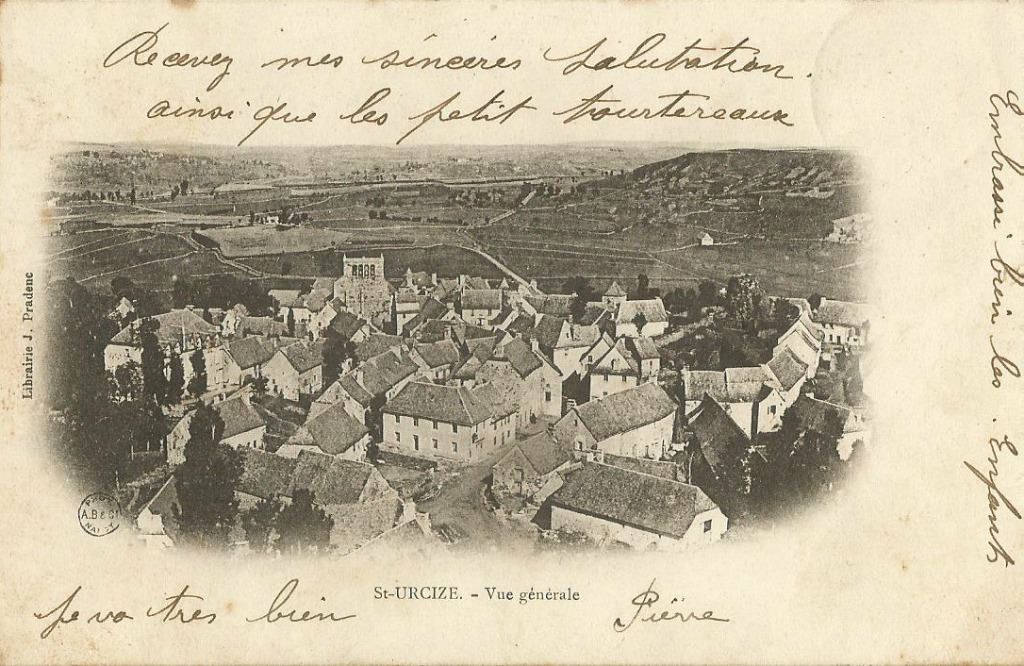 Recevez mes sincères Salutation.
ainsi que les petit tourtereaux
Embrasse bien les Enfants
Librairie J. Pradenc
A.B & C
NANCY
St-URCIZE. - Vue générale
je va tres bien
Pierre